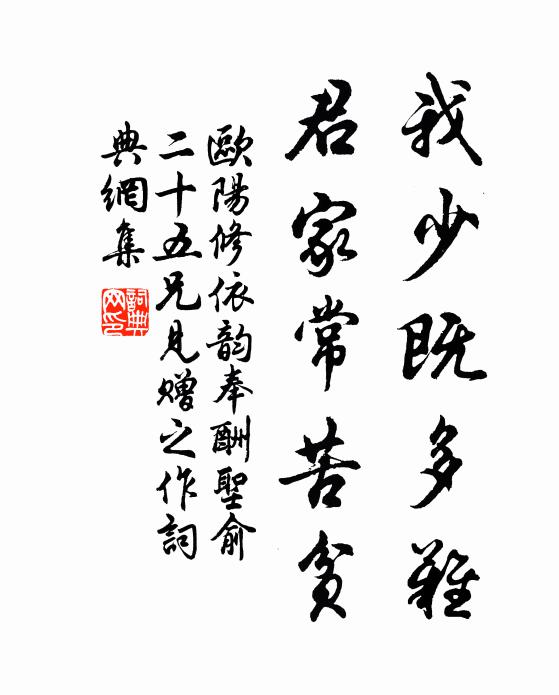 我少既多難
君家常苦貧
歐陽修依韵奉酬聖俞
二十五兄見贈之作詞
典網集
詞典
网印